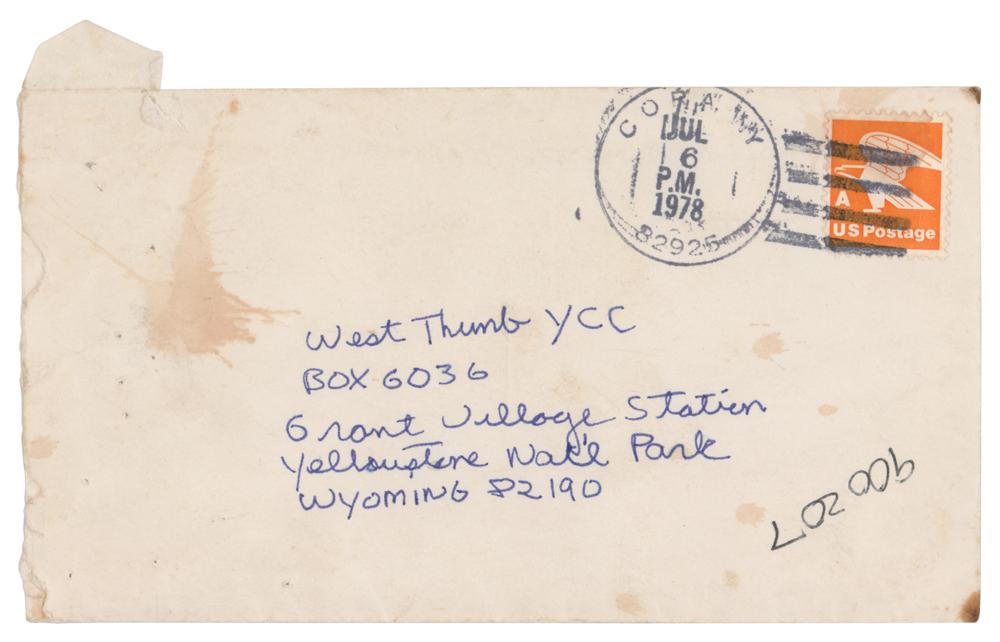 CORA, WY
JUL
6
P.M.
1978
82925
A
US Postage
West Thumb YCC
BOX 6036
Grant Village Station
Yellowstone Nat'l Park
WYOMING 82190